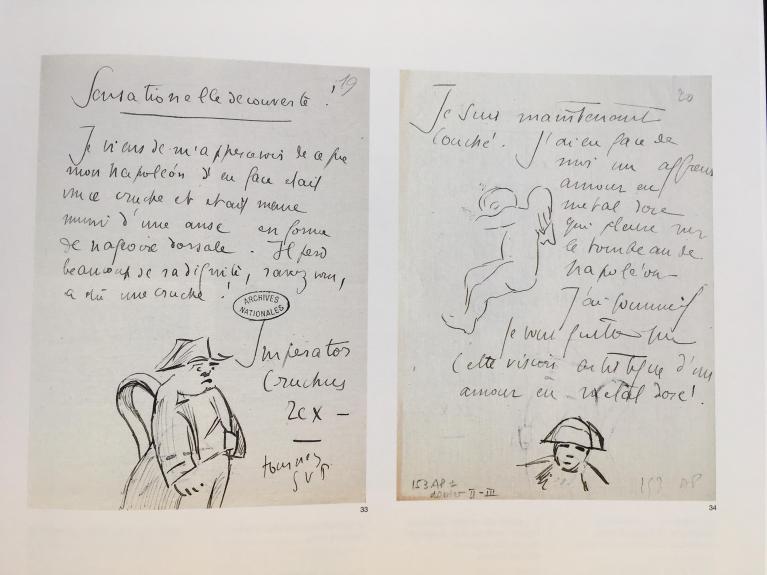 19
Sensationelle decouverte !
Je viens de m'appercevoir de ce que
mon Napoléon d'en face etait
une cruche et etait meme
muni d'une anse en forme
de nageoire dorsale. Il perd
beaucoup de sa dignité, savez vous,
a etre une cruche !
ARCHIVES
NATIONALES
Imperator
Cruchus
Rex –
tournez
S V P.
33
20
Je suis maintenant
couché. J'ai en face de
moi un affreux
amour en
metal doré
qui pleure sur
le tombeau de
Napoléon –
J'ai sommeil
Je vous quitte sur
Cette vision artistique d'un
amour en metal doré !
153 AP 1
dossier II-III
153 AP
34